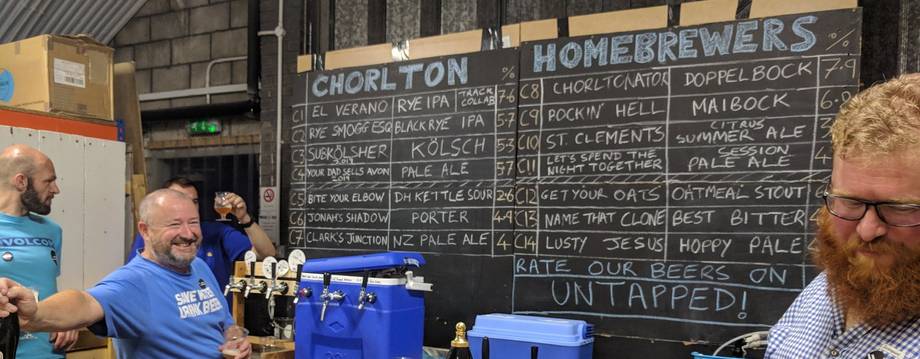 CHORLTON %
C1 EL VERANO RYE IPA TRACK COLLAB 7.6
C2 RYE SMOGG ESQ BLACK RYE IPA 5.7
C3 SUBKÖLSHER KÖLSCH 5.3
C4 YOUR DAD SELLS AVON PALE ALE 5.7
C5 BITE YOUR ELBOW DH KETTLE SOUR 2.6
C6 JONAH'S SHADOW PORTER 4.9
C7 CLARK'S JUNCTION NZ PALE ALE 4
HOMEBREWERS %
C8 CHORLTONATOR DOPPELBOCK 7.9
C9 POCKIN' HELL MAIBOCK
C10 ST. CLEMENTS CITRUS SUMMER ALE
C11 LET'S SPEND THE NIGHT TOGETHER SESSION PALE ALE
C12 GET YOUR OATS OATMEAL STOUT
C13 NAME THAT CLONE BEST BITTER
C14 LUSTY JESUS HOPPY PALE
RATE OUR BEERS ON
UNTAPPED!
VOLCO
SAVE
DRINK BEER